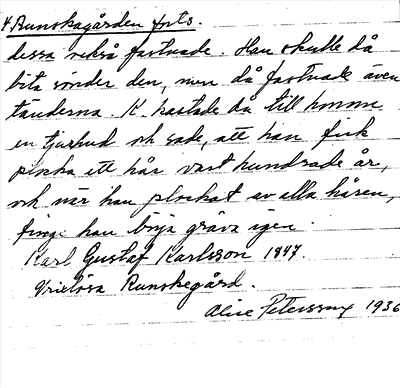 4. Runskagården forts.
dessa också fastnade. Han skulle då
bita sönder den, men då fastnade även
tänderna. K. kastade då till honom
en tjurhud och sade, att han fick
plocka ett hår vart hundrade år,
och när han plockat av alla håren,
finge han börja gräva igen.
Karl Gustaf Karlsson 1847.
Runskegård.
Alice Petersson 1936